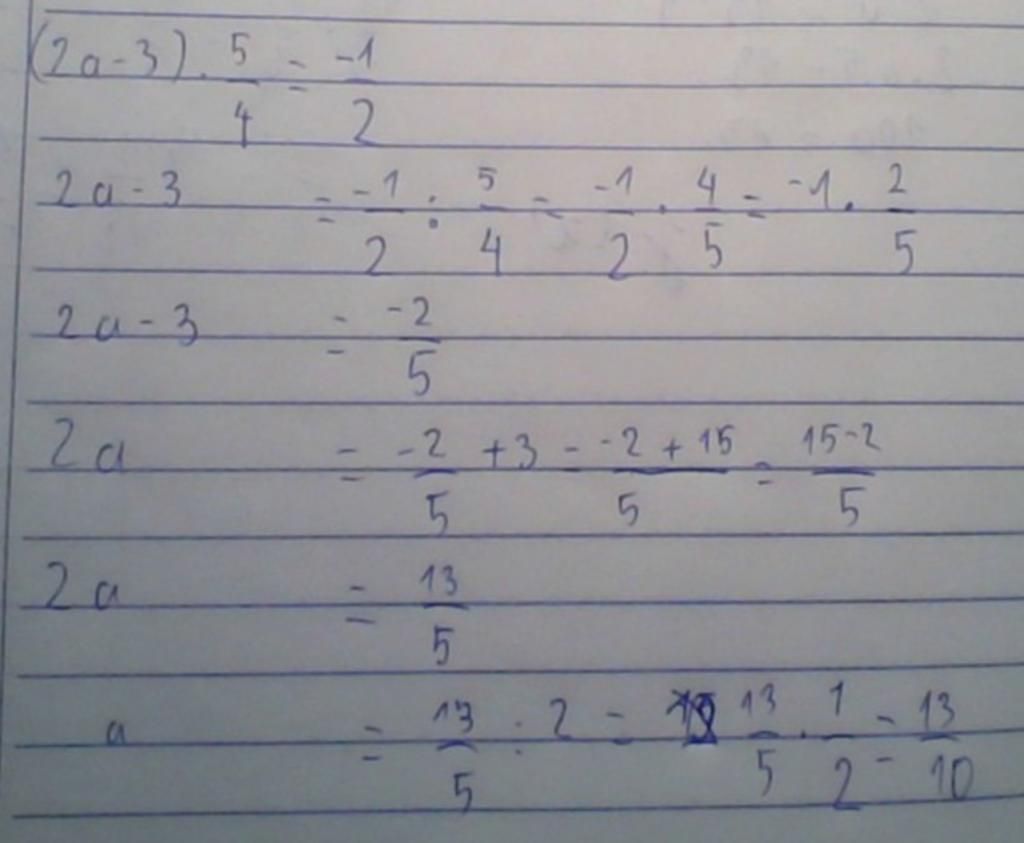 (2a-3) · 5/4 = -1/2
2a-3 = -1/2 : 5/4 = -1/2 · 4/5 = -1 · 2/5
2a-3 = -2/5
2a = -2/5 +3 = -2+15/5 = 15-2/5
2a = 13/5
a = 13/5 : 2 = 13/5 · 1/2 = 13/10